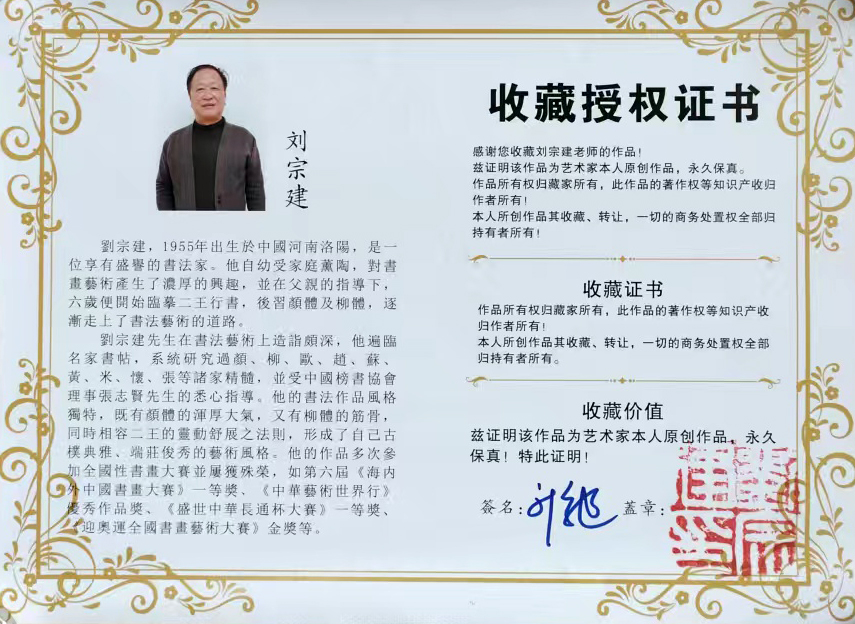 刘宗建
劉宗建，1955年出生於中國河南洛陽，是一
位享有盛譽的書法家。他自幼受家庭薰陶，對書
畫藝術產生了濃厚的興趣，並在父親的指導下，
六歲便開始臨摹二王行書，後習顏體及柳體，逐
漸走上了書法藝術的道路。
劉宗建先生在書法藝術上造詣頗深，他遍臨
名家書帖，系統研究過顏、柳、歐、趙、蘇、
黃、米、懷、張等諸家精髓，並受中國榜書協會
理事張志賢先生的悉心指導。他的書法作品風格
獨特，既有顏體的渾厚大氣，又有柳體的筋骨，
同時相容二王的靈動舒展之法則，形成了自己古
樸典雅、端莊俊秀的藝術風格。他的作品多次參
加全國性書畫大賽並屢獲殊榮，如第六屆《海内
外中國書畫大賽》一等獎、《中華藝術世界行》
優秀作品獎、《盛世中華長通杯大賽》一等獎、
《迎奧運全國書畫藝術大賽》金獎等。
收藏授权证书
感谢您收藏刘宗建老师的作品！
兹证明该作品为艺术家本人原创作品，永久保真。
作品所有权归藏家所有，此作品的著作权等知识产收归
作者所有！
本人所创作品其收藏、转让，一切的商务处置权全部归
持有者所有！
收藏证书
作品所有权归藏家所有，此作品的著作权等知识产收
归作者所有！
本人所创作品其收藏、转让，一切的商务处置权全部
归持有者所有。
收藏价值
兹证明该作品为艺术家本人原创作品，永久
保真！特此证明！
签名：
盖章：